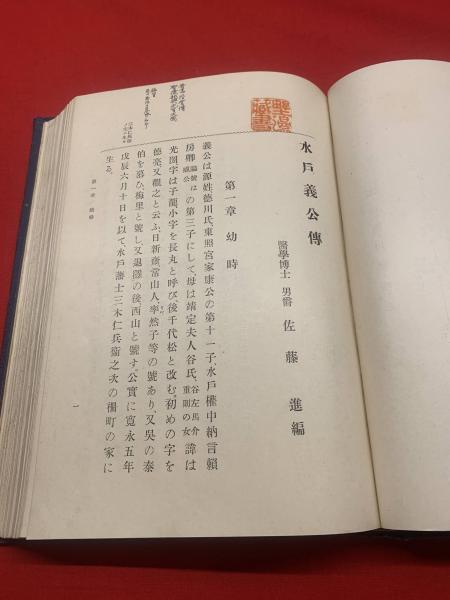 水戶義公傳
醫學博士 男爵 佐藤 進編
第一章 幼時
義公は源姓、德川氏、東照宮家康公の第十一子、水戶權中納言賴
房卿諡號は威公の第三子にして、母は靖定夫人谷氏、谷左馬介重則の女諱は
光圀字は子龍小字を長丸と呼び後千代松と改む。初めの字を
德亮又觀之と云ふ、日新齋、常山人、率然子等の號あり、又吳の泰
伯を慕ひ、梅里と號し又退隱の後、西山と號す。公實に寬永五年
戊辰六月十日を以て、水戶藩士三木仁兵衞之次の柵町の家に
生る。
第一章 幼時
一